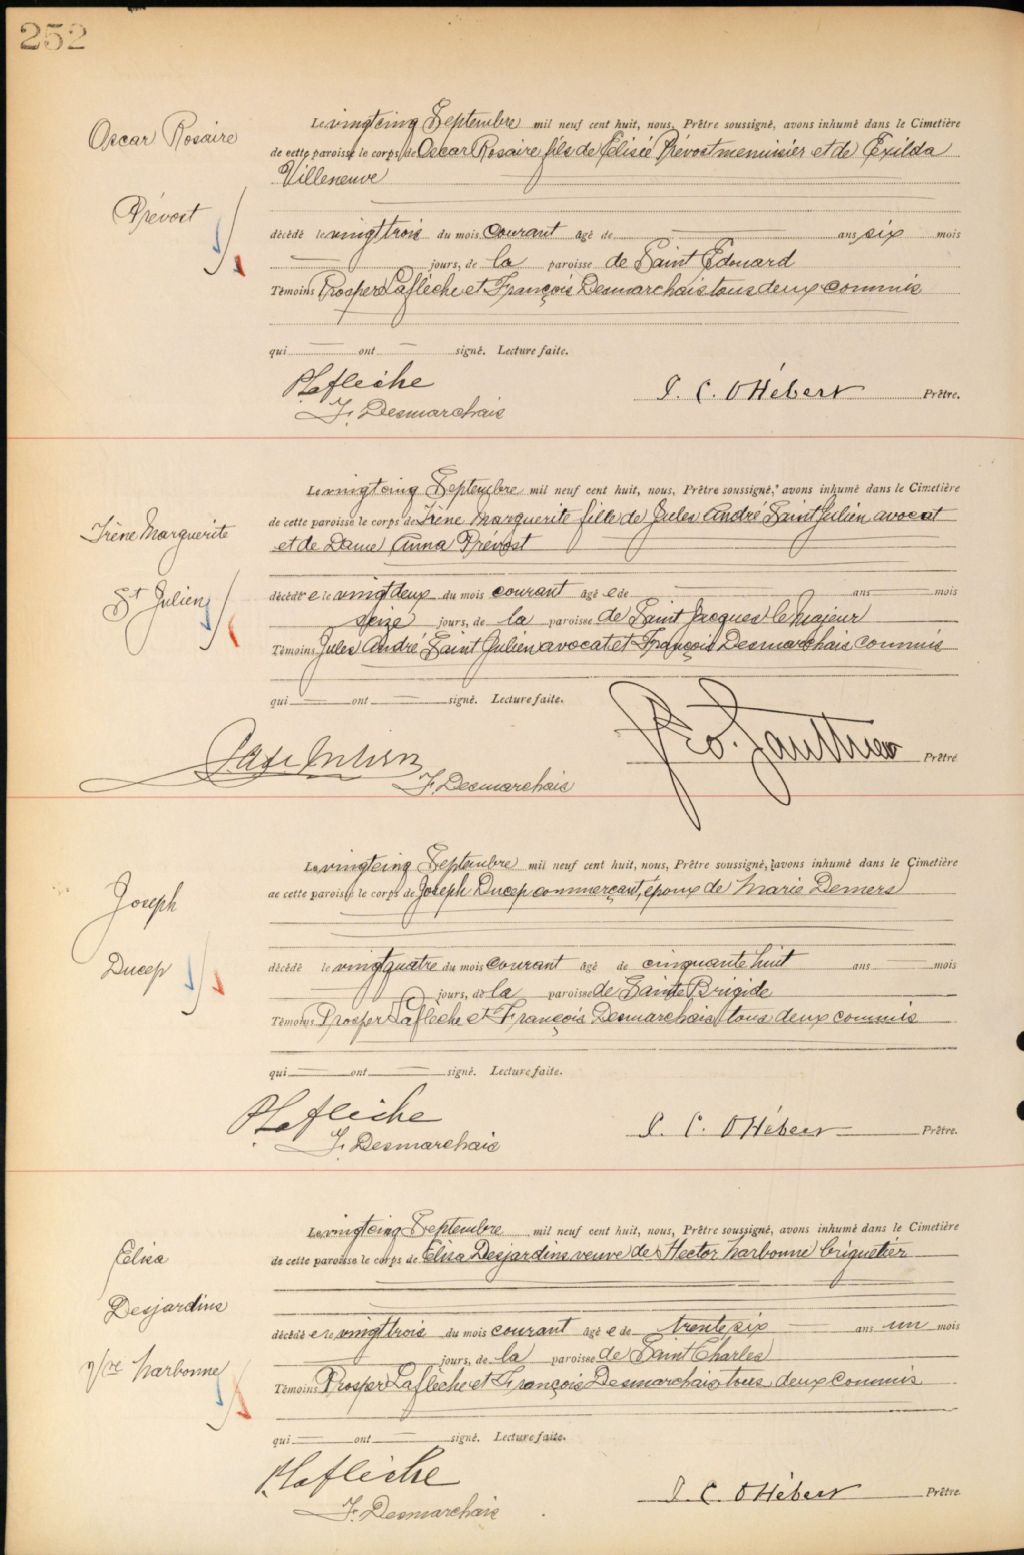 252
Oscar Rosaire
Prévost
Le vingtcinq Septembre mil neuf cent huit, nous, Prêtre soussigné, avons inhumé dans le Cimetière
de cette paroisse le corps de Oscar Rosaire fils de Élisée Prévost menuisier et de Exilda
Villeneuve
décédé le vingttrois du mois courant âgé de — ans six mois
— jours, de la paroisse de Saint Edouard
Témoins Prosper Laflèche et François Desmarchais tous deux commis
qui — ont — signé. Lecture faite.
P. Laflèche
F. Desmarchais
J. C. O Hébert Prêtre.
Irène Marguerite
St Julien
Le vingtcinq Septembre mil neuf cent huit, nous, Prêtre soussigné, avons inhumé dans le Cimetière
de cette paroisse le corps de Irène Marguerite fille de Jules André Saint Julien avocat
et de Dame Anna Prévost
décédé e le vingtdeux du mois courant âgé e de — ans — mois
seize jours, de la paroisse de Saint Jacques le Majeur
Témoins Jules André Saint Julien avocat et François Desmarchais commis
qui — ont — signé. Lecture faite.
F. Desmarchais
Geo. Gauthier Prêtre
Joseph
Ducep
Le vingtcinq Septembre mil neuf cent huit, nous, Prêtre soussigné, avons inhumé dans le Cimetière
de cette paroisse le corps de Joseph Ducep commerçant, époux de Marie Demers
décédé le vingtquatre du mois courant âgé de cinquante huit ans — mois
— jours, de la paroisse de Sainte Brigide
Témoins Prosper Laflèche et François Desmarchais tous deux commis
qui — ont — signé. Lecture faite.
P. Laflèche
F. Desmarchais
J. C. O Hébert Prêtre.
Elisa
Desjardins
Narbonne
Le vingtcinq Septembre mil neuf cent huit, nous, Prêtre soussigné, avons inhumé dans le Cimetière
de cette paroisse le corps de Elisa Desjardins veuve de Hector Narbonne briquetier
décédé e le vingttrois du mois courant âgé e de trente six — ans un mois
— jours, de la paroisse de Saint Charles
Témoins Prosper Laflèche et François Desmarchais tous deux commis
qui — ont — signé. Lecture faite.
P. Laflèche
F. Desmarchais
J. C. O Hébert Prêtre.